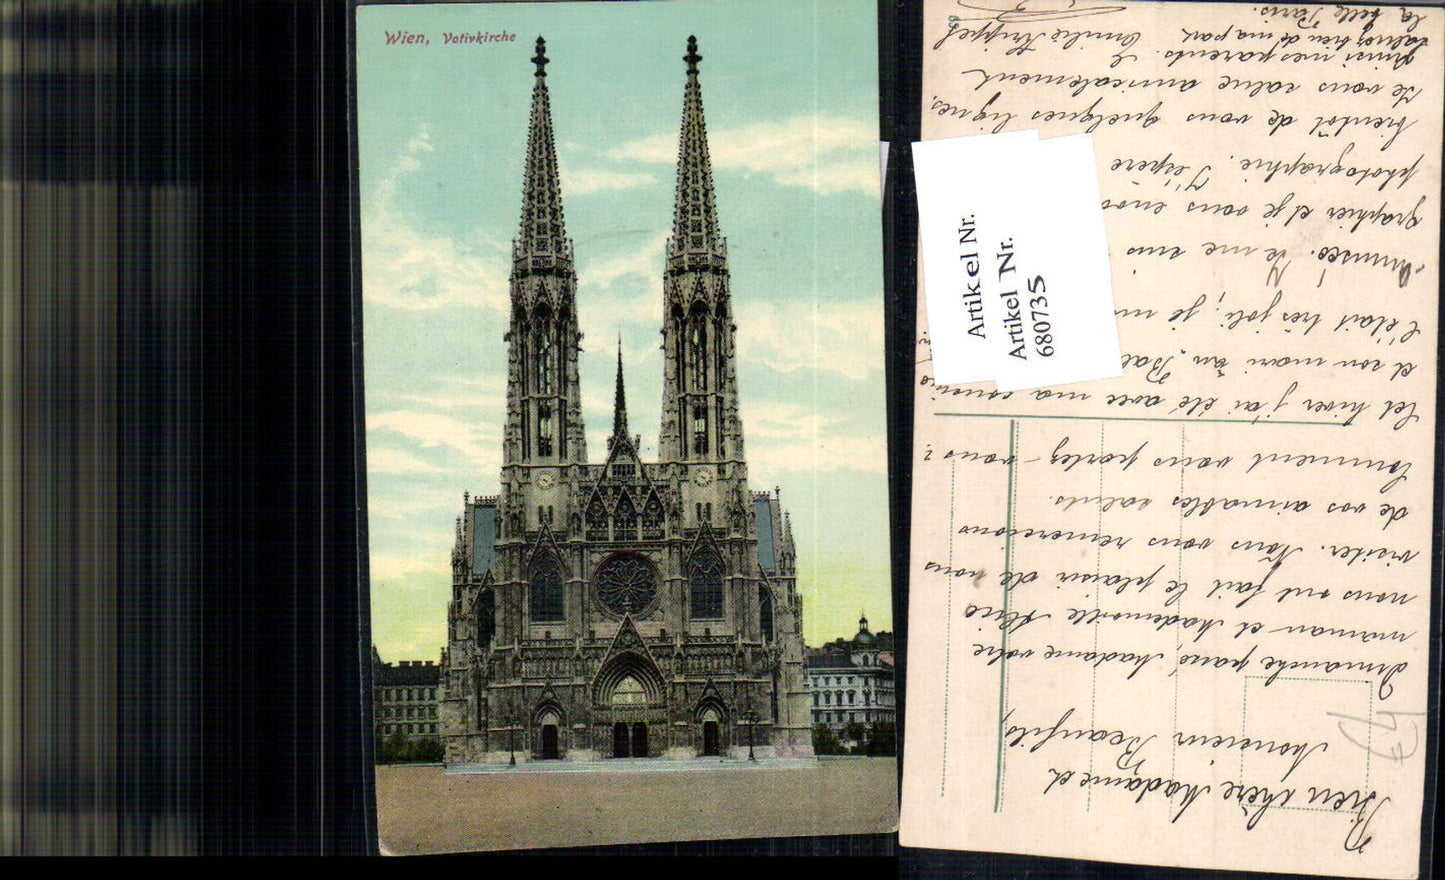 Wien, Votivkirche
Artikel Nr.
Artikel Nr.
680735
Bien chère Madame et
Monsieur Beaufils,
dimanche passé, Madame votre
maman et Mademoiselle
nous ont fait le plaisir de nous
visiter. Nous vous remercions
de vos aimables saluts.
Comment vous portez-vous?
Cet hiver j'ai été avec ma cousine
et son mari au Bal
C'était très joli, je m
amusée. Je me suis
graphier et je vous envo
photographie. J'espère
bientôt de vous quelques lignes.
Je vous salue amicalement
Ainsi mes parents.
Saluez bien de ma part
la belle Paris.